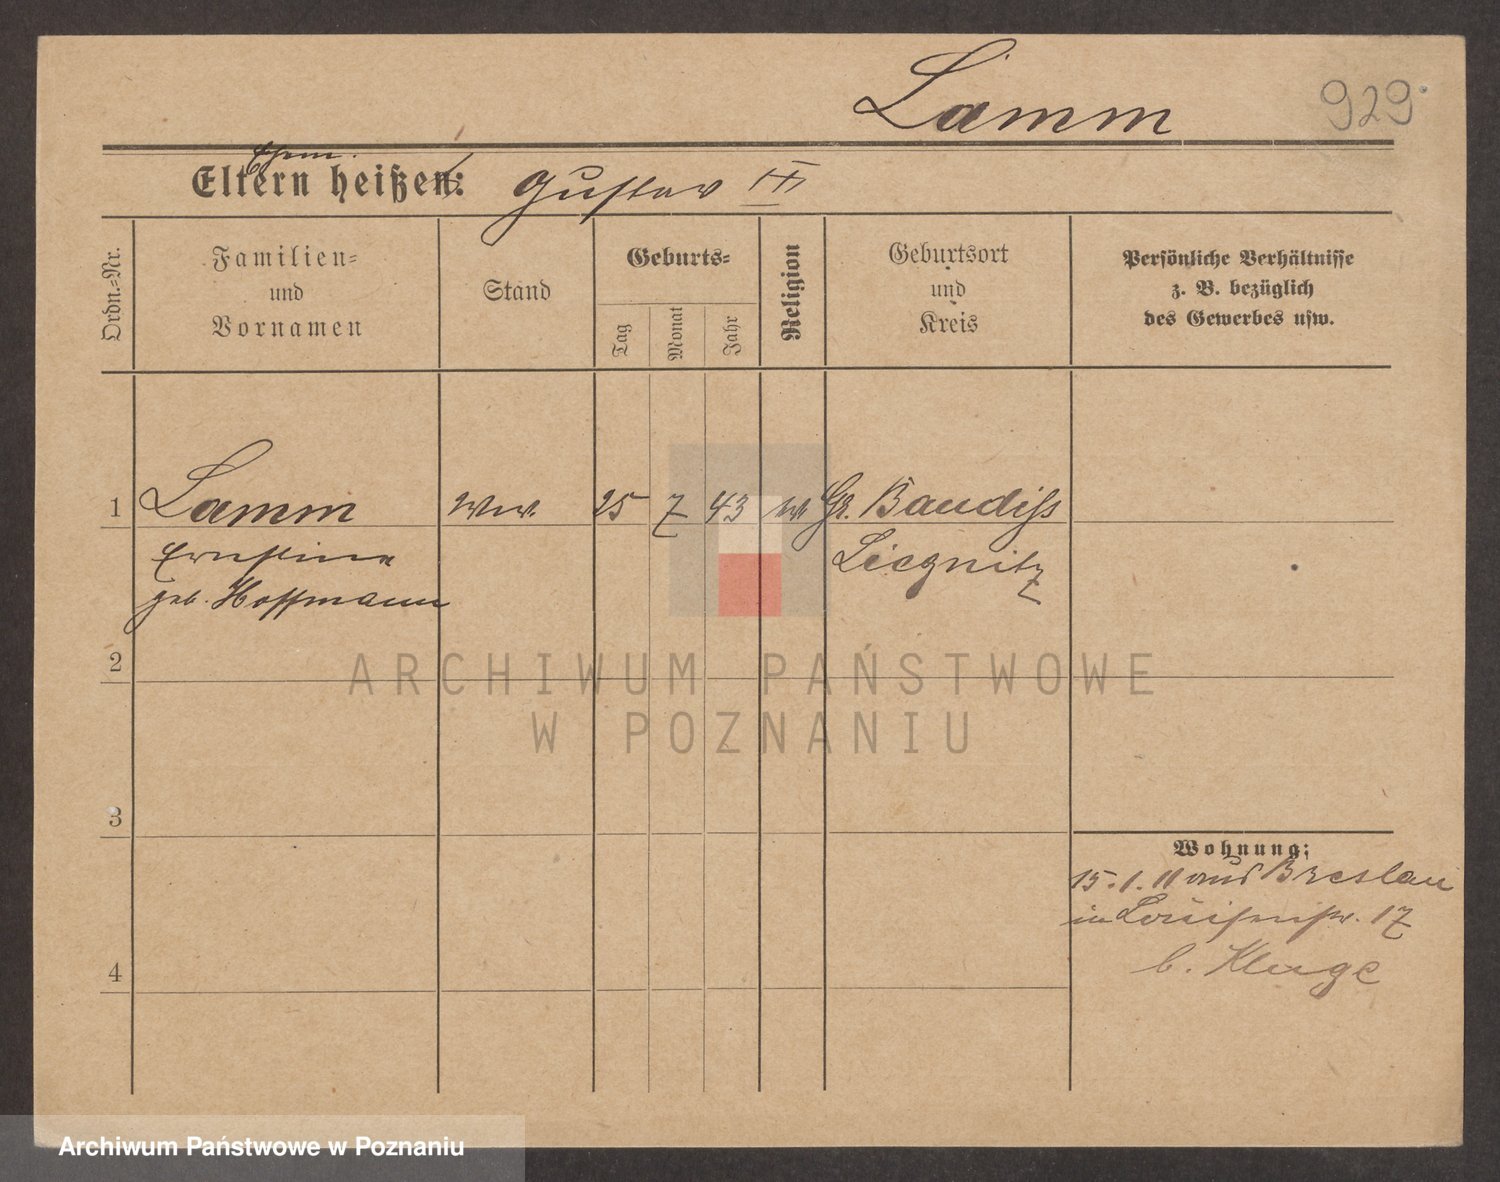 Lamm 929
Ehem.
Eltern heißen: Gustav
Ordn.-Nr.
Familien-
und
Vornamen
Stand
Geburts-
Tag
Monat
Jahr
Religion
Geburtsort
und
Kreis
Persönliche Verhältnisse
z. B. bezüglich
des Gewerbes usw.
1 Lamm Ww. 25 7 43 Gr. Baudiss
Ernstine Liegnitz
geb. Hoffmann
2
3
4
Wohnung:
15.1.11 aus Breslau
in Louisenstr. 17
b. Kluge
ARCHIWUM PAŃSTWOWE
W POZNANIU
Archiwum Państwowe w Poznaniu